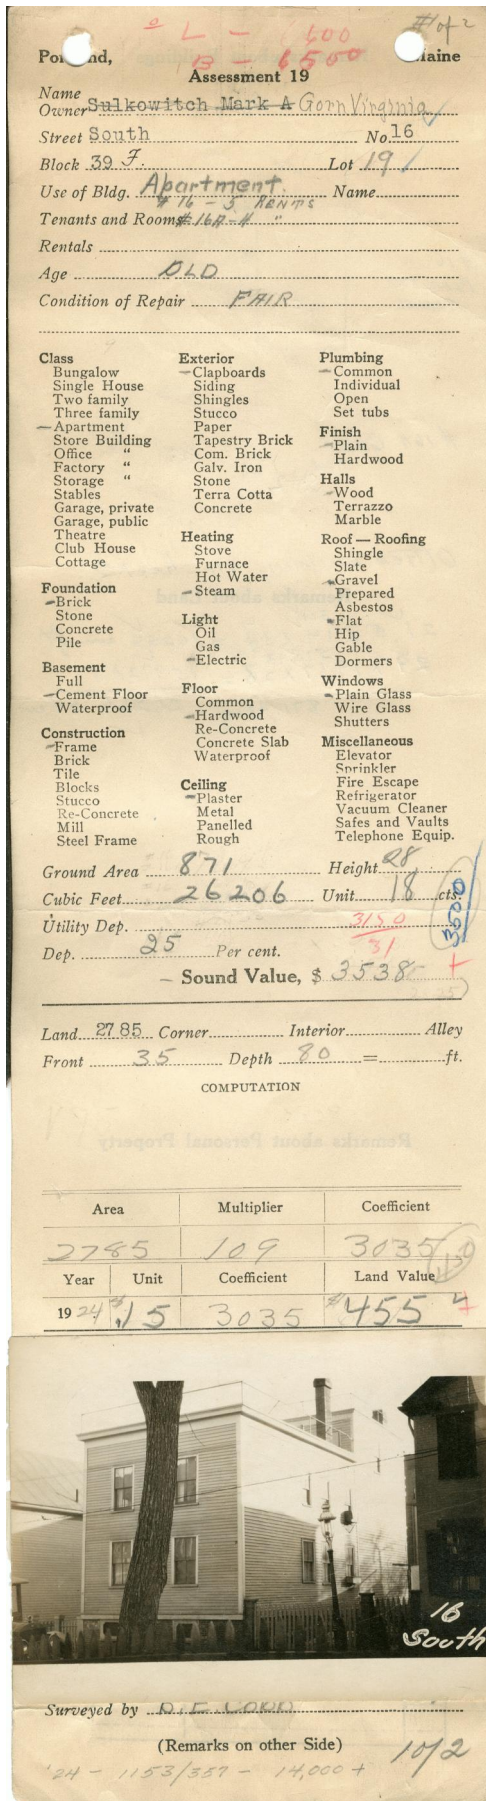 #1 of 2
L - 600
B - 6500
Portland, Maine
Assessment 19
Name
Owner Sulkowitch Mark A Gorn Virginia
Street South No. 16
Block 39 F. Lot 19
Use of Bldg. Apartment. Name
#16 - 5 RENTS
Tenants and Rooms #16A-4 "
Rentals
Age OLD
Condition of Repair FAIR
Class
Bungalow
Single House
Two family
Three family
Apartment
Store Building
Office "
Factory "
Storage "
Stables
Garage, private
Garage, public
Theatre
Club House
Cottage
Foundation
Brick
Stone
Concrete
Pile
Basement
Full
Cement Floor
Waterproof
Construction
Frame
Brick
Tile
Blocks
Stucco
Re-Concrete
Mill
Steel Frame
Exterior
Clapboards
Siding
Shingles
Stucco
Paper
Tapestry Brick
Com. Brick
Galv. Iron
Stone
Terra Cotta
Concrete
Heating
Stove
Furnace
Hot Water
Steam
Light
Oil
Gas
Electric
Floor
Common
Hardwood
Re-Concrete
Concrete Slab
Waterproof
Ceiling
Plaster
Metal
Panelled
Rough
Plumbing
Common
Individual
Open
Set tubs
Finish
Plain
Hardwood
Halls
Wood
Terrazzo
Marble
Roof — Roofing
Shingle
Slate
Gravel
Prepared
Asbestos
Flat
Hip
Gable
Dormers
Windows
Plain Glass
Wire Glass
Shutters
Miscellaneous
Elevator
Sprinkler
Fire Escape
Refrigerator
Vacuum Cleaner
Safes and Vaults
Telephone Equip.
Ground Area 871 Height 28
Cubic Feet 26206 Unit 18 cts.
3500
Utility Dep. 3150
31
Dep. 25 Per cent.
Sound Value, $ 3538
Land 2785 Corner Interior Alley
Front 35 Depth 80 = ft.
COMPUTATION
Area Multiplier Coefficient
2785 109 3035
Year Unit Coefficient Land Value
1924 $.15 3035 $455
16
South
Surveyed by
(Remarks on other Side)
10/2
'24 - 1153/357 - 14,000 +